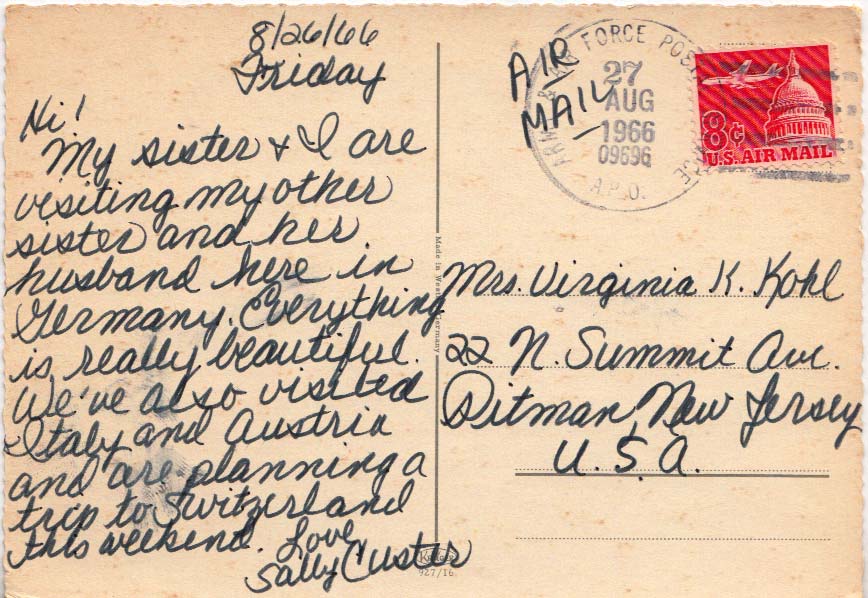 8/26/66
Friday
Hi!
My sister & I are
visiting my other
sister and her
husband here in
Germany. Everything
is really beautiful.
We've also visited
Italy and Austria
and are planning a
trip to Switzerland
this weekend. Love
Sally Custer
Made in Western Germany
Krüger
927/16
AIR
MAIL
ARMY & AIR FORCE POSTAL SERVICE
27
AUG
1966
09696
A.P.O.
8¢
U.S. AIR MAIL
Mrs. Virginia K. Kohl
22 N. Summit Ave.
Pitman, New Jersey
U.S.A.